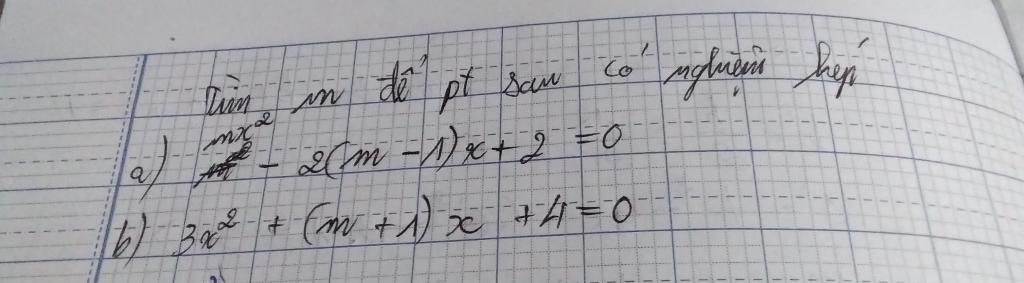 Tìm m để pt sau có nghiệm kép
a) mx² - 2(m - 1)x + 2 = 0
b) 3x² + (m + 1)x + 4 = 0